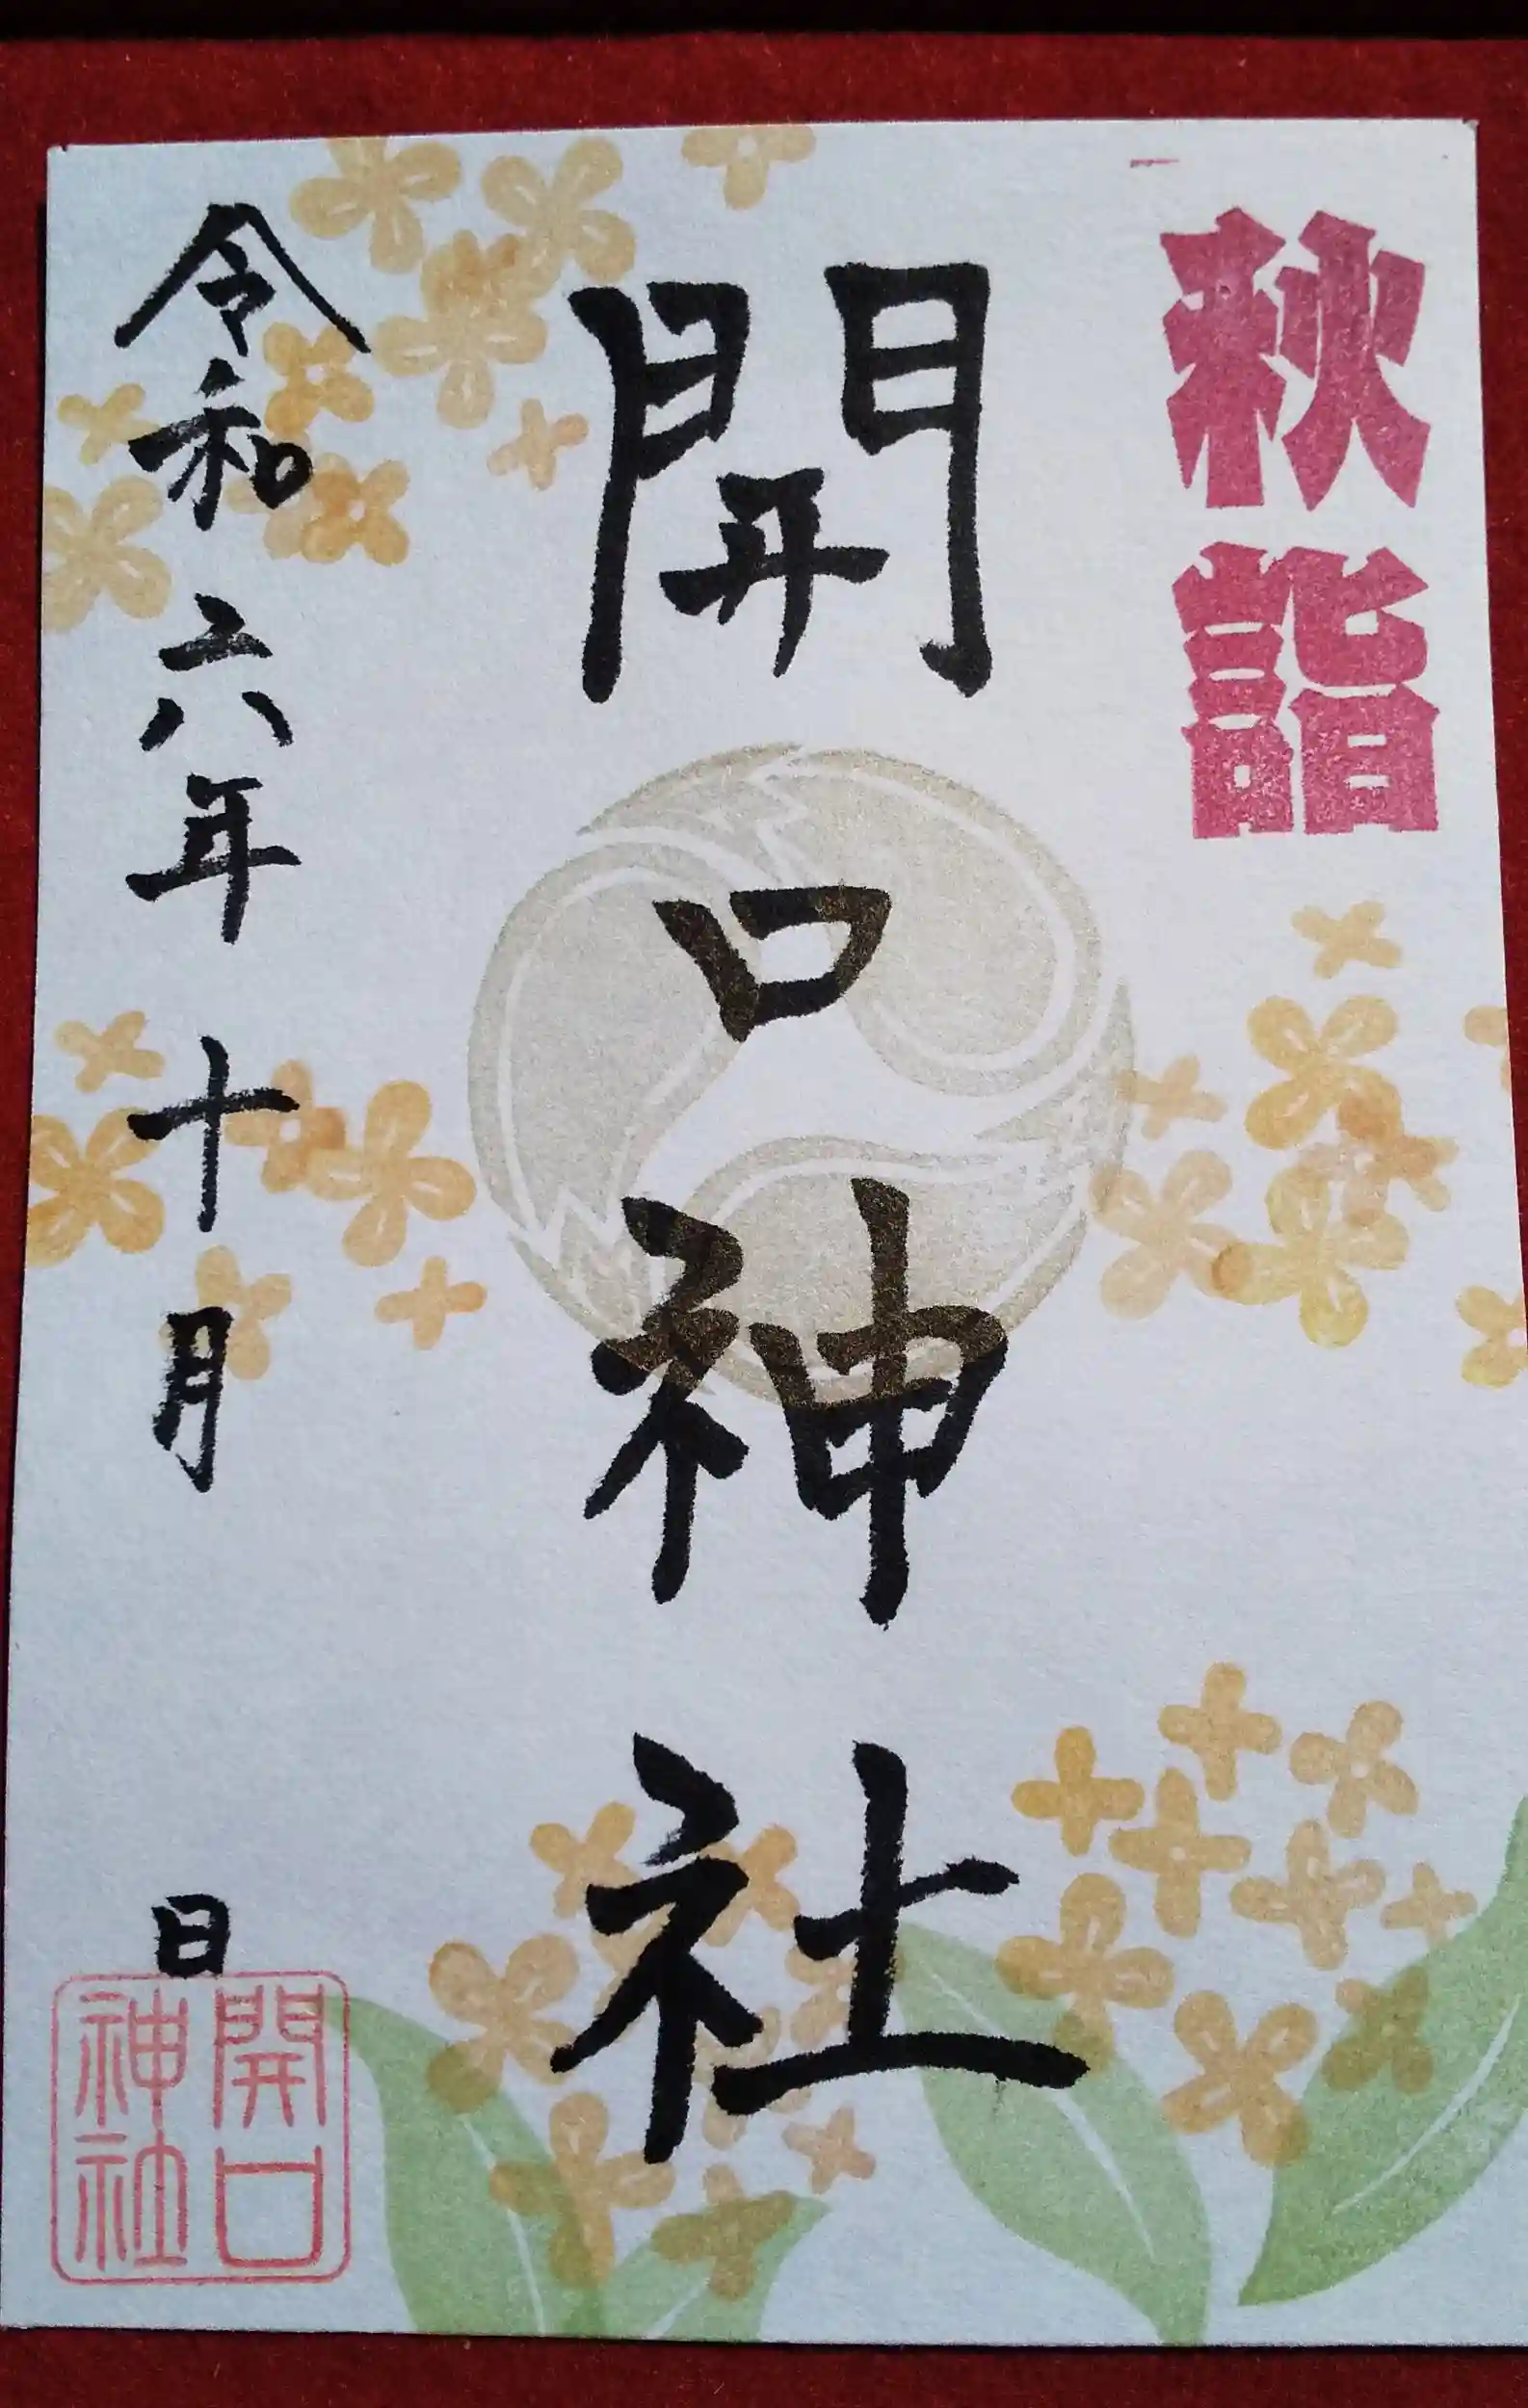 秋詣
開口神社
令和六年十月 日
開口
神社